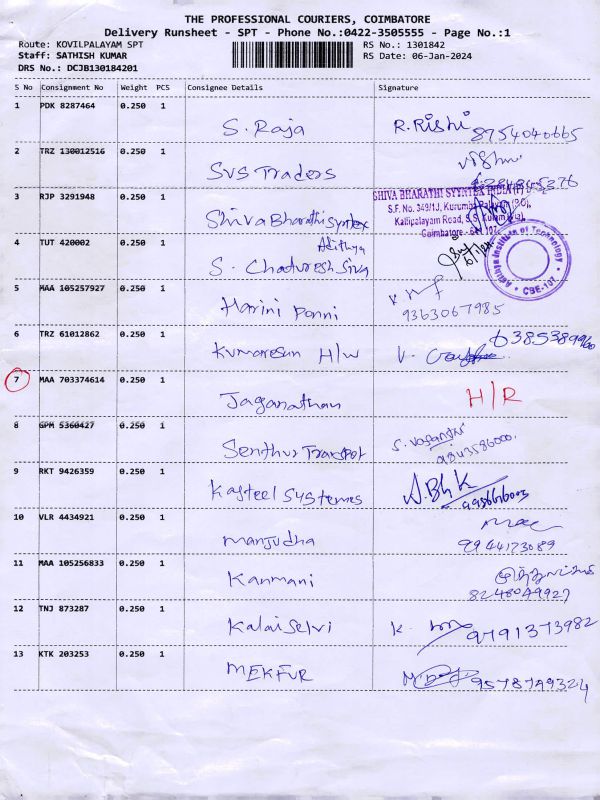 THE PROFESSIONAL COURIERS, COIMBATORE
Delivery Runsheet - SPT - Phone No.:0422-3505555 - Page No.:1
Route: KOVILPALAYAM SPT RS No.: 1301842
Staff: SATHISH KUMAR RS Date: 06-Jan-2024
DRS No.: DCJB130184201
S No Consignment No Weight PCS Consignee Details Signature
1 PDK 8287464 0.250 1
S. Raja R. Rishi 8754040665
2 TRZ 130012516 0.250 1
SVS Traders
3 RJP 3291948 0.250 1
SHIVA BHARATHI SYNTEX INDIA (P)
S.F. No. 349/1J, Kurumbapalayam (PO),
Shiva Bharathi Syntex Kalipalayam Road, S.S. Kulam (Via),
Coimbatore - 641 107
4 TUT 420002 0.250 1
Adithya
S. Chaturesh Siva
Adithya Institute of Technology
CBE-107
5 MAA 105257927 0.250 1
Harini Ponni 9363067985
6 TRZ 61012862 0.250 1
Kumaresan H/W V.
7 MAA 703374614 0.250 1
Jaganathan H/R
8 GPM 5360427 0.250 1
Senthur Transport S. Vasanthi
9843586000
9 RKT 9426359 0.250 1
Kasteel Systems A.Bhk
10 VLR 4434921 0.250 1
Manjudha 9944123089
11 MAA 105256833 0.250 1
Kanmani 8248049927
12 TNJ 873287 0.250 1
Kalaiselvi K. 9791373982
13 KTK 203253 0.250 1
MEKFUR 9578799324